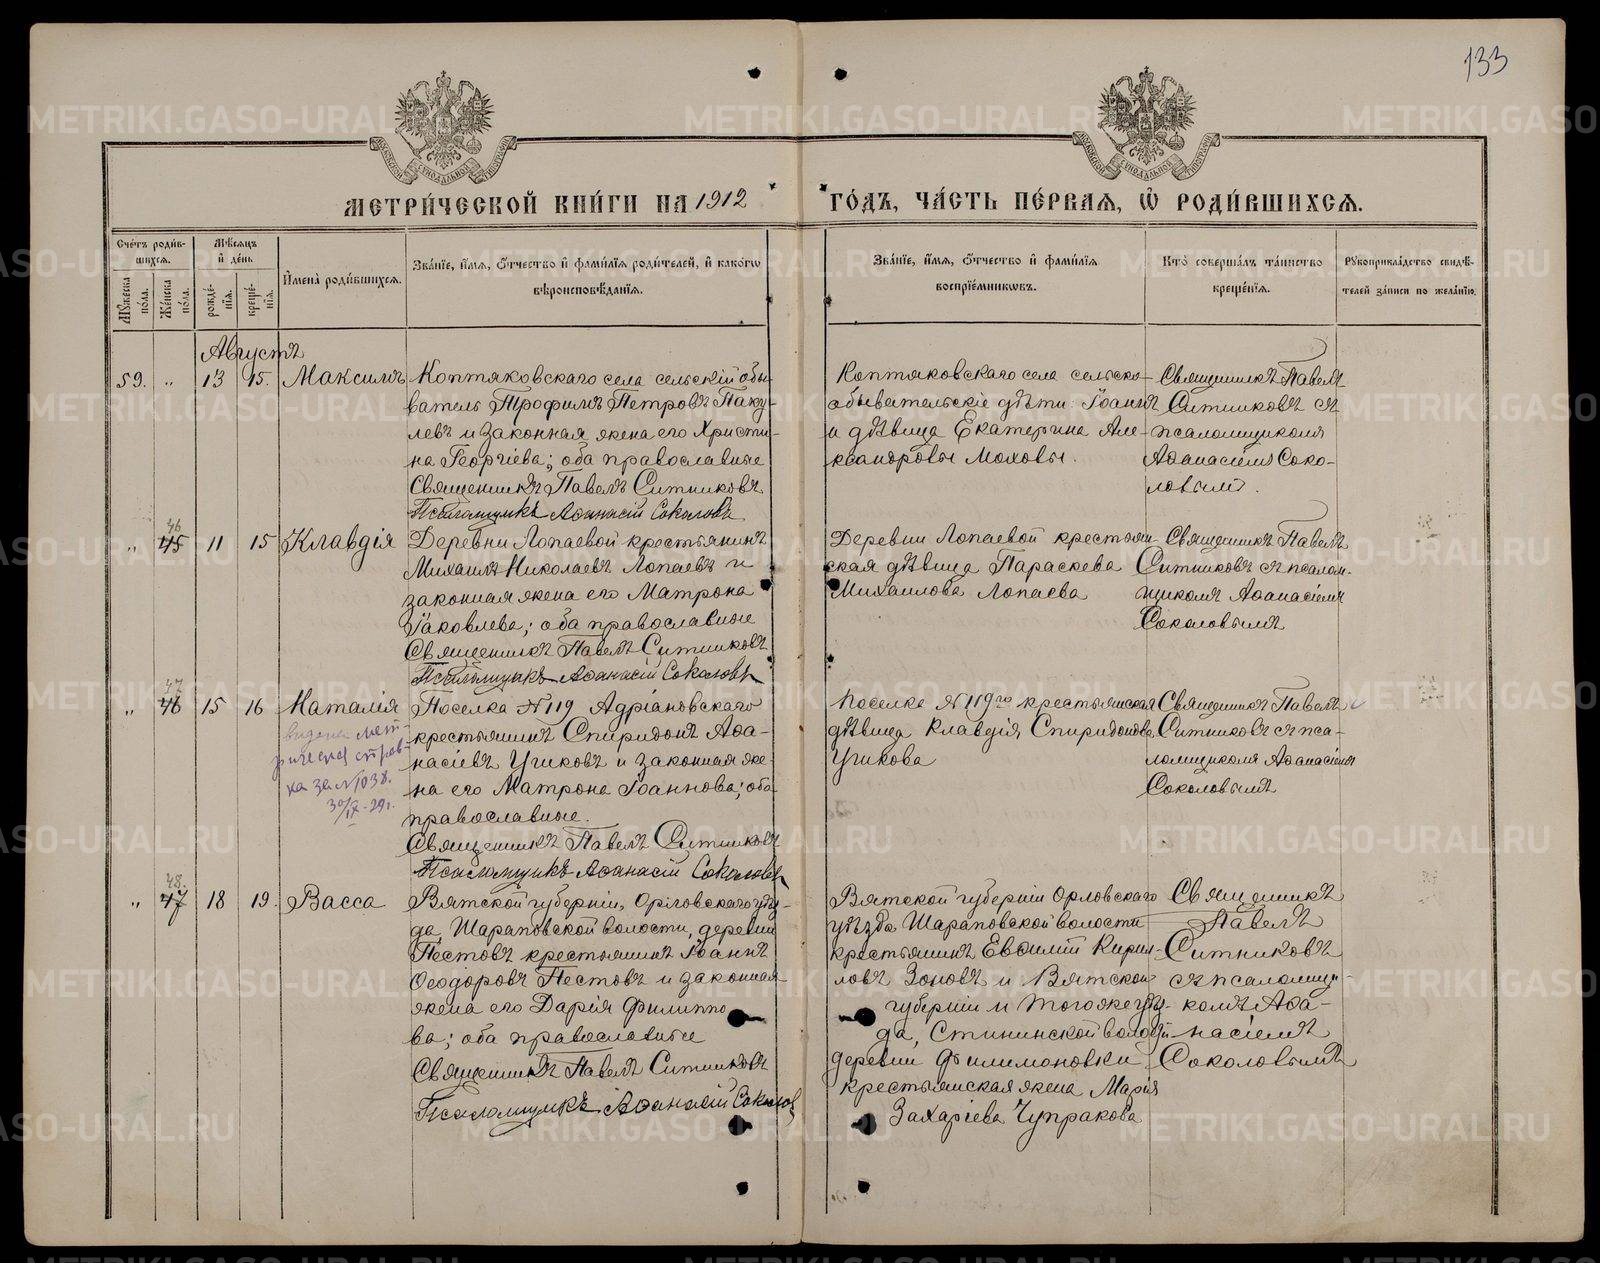 133
МЕТРИ́ЧЕСКОЙ КНИ́ГИ НА 1912 ГО́ДЪ, ЧА́СТЬ ПЕ́РВАѦ, Ѽ РОДИ́ВШИХСѦ.
Сче́тъ роди́вшихсѧ.
Мꙋ́жеска по́ла.
Же́нска по́ла.
Мѣ́сѧцъ и҆ де́нь
рожде́нїѧ.
креще́нїѧ.
И҆мена̀ роди́вшихсѧ.
Зва́нїе, и҆́мѧ, ѻ҆́тчество и҆ фами́лїѧ роди́телей, и҆ како́гѡ
вѣроисповѣ́данїѧ.
Зва́нїе, и҆́мѧ, ѻ҆́тчество и҆ фами́лїѧ
воспрїе́мникѡвъ.
Кто̀ соверша́лъ та́инство
креще́нїѧ.
Рꙋкоприкла́дство свидѣ́-
телей за́писи по жела́нїю.
Августъ
59. „ 13 15. Максимъ
Коптяковскаго села сельскій обы-
ватель Трофимъ Петровъ Паку-
левъ и законная жена его Христи-
на Георгіева; оба православные
Священникъ Павелъ Ситниковъ
Псаломщикъ Аѳанасій Соколовъ
Коптяковскаго села сельско-
обывательскіе дѣти: Іоаннъ
и дѣвица Екатерина Але-
ксандровы Моховы.
Священникъ Павелъ
Ситниковъ съ
псаломщикомъ
Аѳанасіемъ Соко-
ловымъ.
46
„ 45 11 15 Клавдія
Деревни Лопаевой крестьянинъ
Михаилъ Николаевъ Лопаевъ и
законная жена его Матрона
Іаковлева; оба православные
Священникъ Павелъ Ситниковъ
Псаломщикъ Аѳанасій Соколовъ
Деревни Лопаевой крестьян-
ская дѣвица Параскева
Михаилова Лопаева
Священникъ Павелъ
Ситниковъ съ псалом-
щикомъ Аѳанасіемъ
Соколовымъ
47
„ 46 15 16 Наталія
видена мет
рическ справ-
ка за №1038.
30/IX-29г.
Поселка №119 Адріановскаго
крестьянинъ Спиридонъ Аѳа-
насіевъ Учиковъ и законная же-
на его Матрона Іоаннова; оба
православные.
Священникъ Павелъ Ситниковъ
Псаломщикъ Аѳанасій Соколовъ
Поселка №119го крестьянская
дѣвица Клавдія Спиридонова
Учикова
Священникъ Павелъ
Ситниковъ съ пса-
ломщикомъ Аѳанасіемъ
Соколовымъ
48.
„ 47 18 19. Васса
Вятской губерніи, Орловскаго уѣз-
да, Шараповской волости, деревни
Пестовъ крестьянинъ Іоаннъ
Ѳеодоровъ Пестовъ и законная
жена его Дарія Филиппо
ва; оба православные
Священникъ Павелъ Ситниковъ
Псаломщикъ Аѳанасій Соколов
Вятской губерніи Орловскаго
уѣзда Шараповской волости
крестьянинъ Евѳимій Кирил-
ловъ Зоновъ и Вятской
губерніи и того же уѣз-
да, Стининской волости
деревни Филимоновки
крестьянская жена Марія
Захаріева Чупракова
Священникъ
Павелъ
Ситниковъ
съ псаломщи-
комъ Аѳа-
насіемъ
Соколовымъ